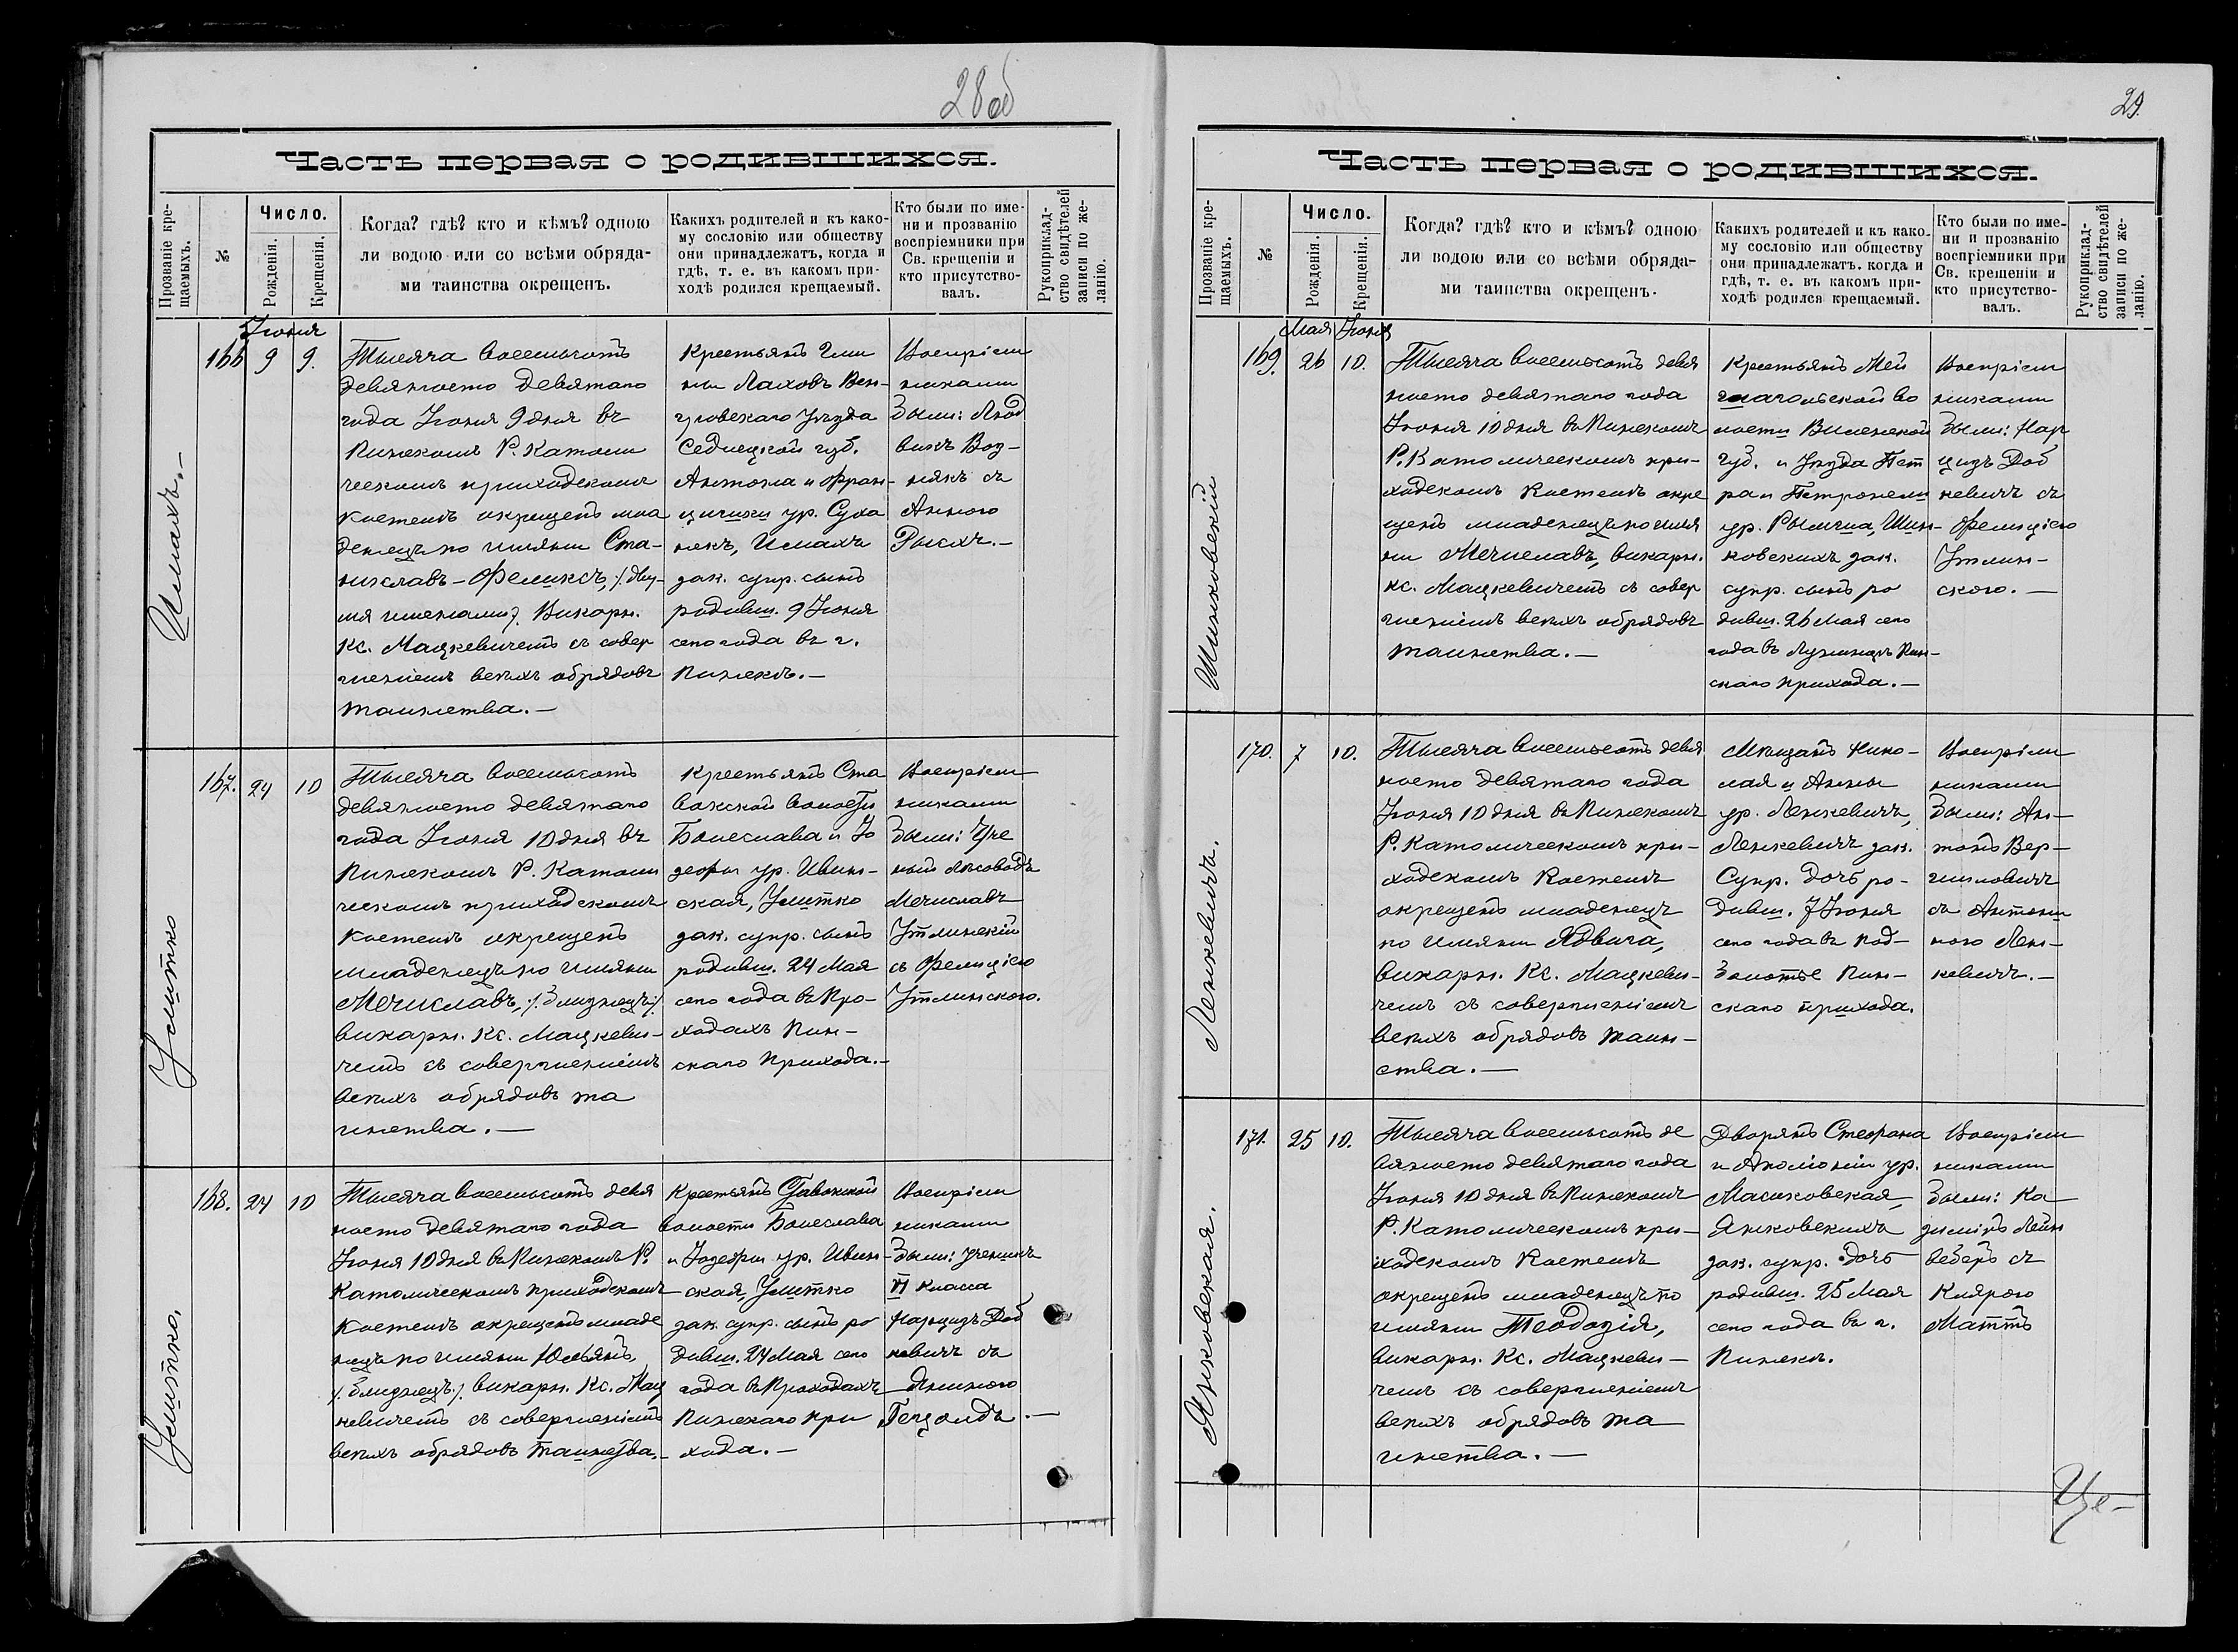 28об
Часть первая о родившихся.
Прозваніе крещаемыхъ.
№
Число.
Рожденія.
Крещенія.
Когда? гдѣ? кто и кѣмъ? одною
ли водою или со всѣми обряда-
ми таинства окрещенъ.
Какихъ родителей и къ како-
му сословію или обществу
они принадлежатъ, когда и
гдѣ, т. е. въ какомъ при-
ходѣ родился крещаемый.
Кто были по име-
ни и прозванію
воспріемники при
Св. крещеніи и
кто присутство-
валъ.
Рукоприклад-
ство свидѣтелей
записи по же-
ланію.
Іюня
166 9 9.
Тысяча восемьсотъ
девяносто девятаго
года Іюня 9 дня въ
Пинскомъ Р. Католи
ческомъ приходскомъ
костелѣ окрещенъ мла
денецъ по имяни Ста-
ниславъ-Феликсъ, /:дву-
мя именами:/ Викарн.
Кс. Мацкевичемъ съ совер
шеніемъ всѣхъ обрядовъ
таинства.—
Крестьянъ Гми
ны Ляховъ Вен-
гровскаго Уѣзда
Сѣдлецкой губ.
Антона и Фран-
цишки ур. Суха
некъ,
зак. супр. сынъ
родивш. 9 Іюня
сего года въ г.
Пинскѣ.—
Воспріем
никами
были: Люд
викъ Воз-
някъ съ
Анною
167. 24 10
Усцитко
Тысяча восемьсотъ
девяносто девятаго
года Іюня 10 дня въ
Пинскомъ Р. Католи
ческомъ приходскомъ
костелѣ окрещенъ
младенецъ по имяни
Мечиславъ, /:близнецъ:/
викарн. Кс. Мацкеви-
чемъ съ совершеніемъ
всѣхъ обрядовъ та
инства.—
Крестьянъ Ста
вокской волости
Болеслава и Іо
зефы ур. Ивин-
ская, Усцитко
зак. супр. сынъ
родивш. 24 Мая
сего года въ Про-
ходахъ Пин-
скаго прихода.—
Воспріем
никами
были: Уче
ный лѣсоводъ
Мечиславъ
съ Фелиціею
168. 24 10
Усцитко.
Тысяча восемьсотъ девя
носто девятаго года
Іюня 10 дня въ Пинскомъ Р.
Католическомъ приходскомъ
костелѣ окрещенъ младе
нецъ по имяни Юльянъ
/:близнецъ:/ викарн. Кс. Мац
кевичемъ съ совершеніемъ
всѣхъ обрядовъ таинства.—
Крестьянъ Ставокской
волости Болеслава
и Іозефы ур. Ивин-
ская, Усцитко
зак. супр. сынъ ро
дивш. 24 Мая сего
года въ Проходахъ
Пинскаго при
хода.—
Воспріем
никами
были: ученикъ
VI класса
Нарцизъ Доб
кевичъ съ
Яниною
29.
Часть первая о родившихся.
Прозваніе крещаемыхъ.
№
Число.
Рожденія.
Крещенія.
Когда? гдѣ? кто и кѣмъ? одною
ли водою или со всѣми обряда-
ми таинства окрещенъ.
Какихъ родителей и къ како-
му сословію или обществу
они принадлежатъ. когда и
гдѣ, т. е. въ какомъ при-
ходѣ родился крещаемый.
Кто были по име-
ни и прозванію
воспріемники при
Св. крещеніи и
кто присутство-
валъ.
Рукоприклад-
ство свидѣтелей
записи по же-
ланію.
Мая Іюня
169. 26 10.
Шинковскій
Тысяча восемьсотъ девя
носто девятаго года
Іюня 10 дня въ Пинскомъ
Р. Католическомъ при-
ходскомъ костелѣ окре
щенъ младенецъ по имя
ни Мечиславъ, викарн.
кс. Мацкевичемъ съ совер
шеніемъ всѣхъ обрядовъ
таинства.—
Крестьянъ Мей
шагольской во
лости Виленской
губ. и Уѣзда Пет
ра и Петронели
ур. Шин-
ковскихъ зак.
супр. сынъ ро
дивш. 26 Мая сего
года въ Лужицахъ Пин-
скаго прихода.—
Воспріем
никами
были: Нар
цизъ Доб
кевичъ съ
Фелиціею
170. 7 10.
Ленкевичъ.
Тысяча восемьсотъ девя
носто девятаго года
Іюня 10 дня въ Пинскомъ
Р. Католическомъ при-
ходскомъ костелѣ
окрещенъ младенецъ
по имяни Ядвига,
викарн. Кс. Мацкеви-
чемъ съ совершеніемъ
всѣхъ обрядовъ таин-
ства.—
Мѣщанъ Нико-
лая и Анны
ур. Ленкевичъ,
Ленкевичъ зак.
супр. дочь ро-
дивш. 7 Іюня
сего года въ Под-
болотье Пин-
скаго прихода.
Воспріем
никами
были: Ан-
тонъ Вер-
съ Антони
ною Лен-
кевичъ.—
171. 25 10.
Янковская.
Тысяча восемьсотъ де
вяносто девятаго года
Іюня 10 дня въ Пинскомъ
Р. Католическомъ при-
ходскомъ костелѣ
окрещенъ младенецъ по
имяни Теодозія,
викарн. Кс. Мацкеви-
чемъ съ совершеніемъ
всѣхъ обрядовъ та
инства.—
Дворянъ Стефана
и Аполіоніи ур.
Масюковская,
Янковскихъ
зак. супр. дочь
родивш. 25 Мая
сего года въ г.
Пинскѣ.
Воспріем
никами
были: Ка
зиміръ Лейн
веберъ съ
Клярою
Маттъ